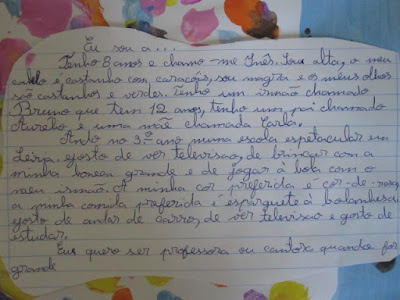 Eu sou a...
Tenho 8 anos e chamo-me Inês. Sou alta, o meu
cabelo é castanho com caracóis, sou magra e os meus olhos
são castanhos e verdes. Tenho um irmão chamado
Bruno que tem 12 anos, tenho um pai chamado
Aurélio e uma mãe chamada Carla.
Ando no 3º ano numa escola espetacular em
Leiria. gosto de ver televisão, de brincar com a
minha boneca grande e de jogar à bola com o
meu irmão. A minha cor preferida é cor-de-rosa,
a minha comida preferida é esparguete à bolonhesa,
gosto de andar de carro, de ver televisão e gosto de
estudar.
Eu quero ser professora ou cantora quando for
grande